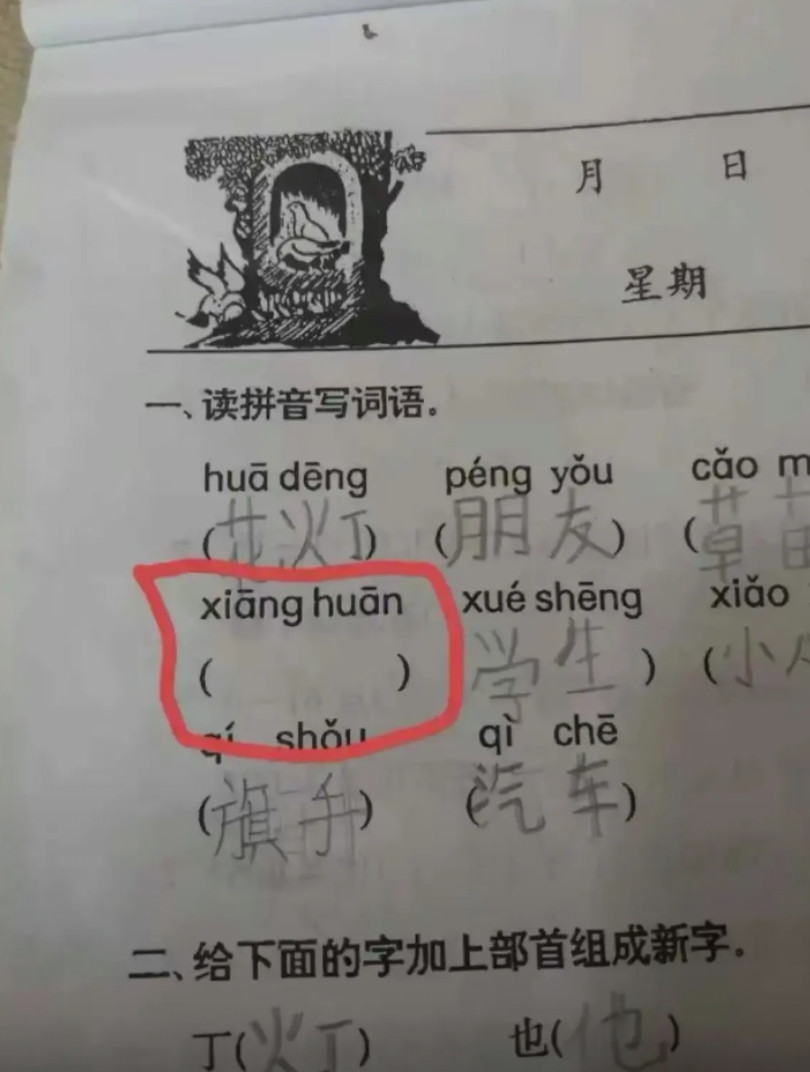 月 日
星期
一、读拼音写词语。
huā dēng péng yǒu cǎo m
(花灯) (朋友) (草苗
xiāng huān xué shēng xiǎo
( ) 学生 ) (小人
qí shǒu qì chē
(旗手) (汽车)
二、给下面的字加上部首组成新字。
丁(灯) 也(他)